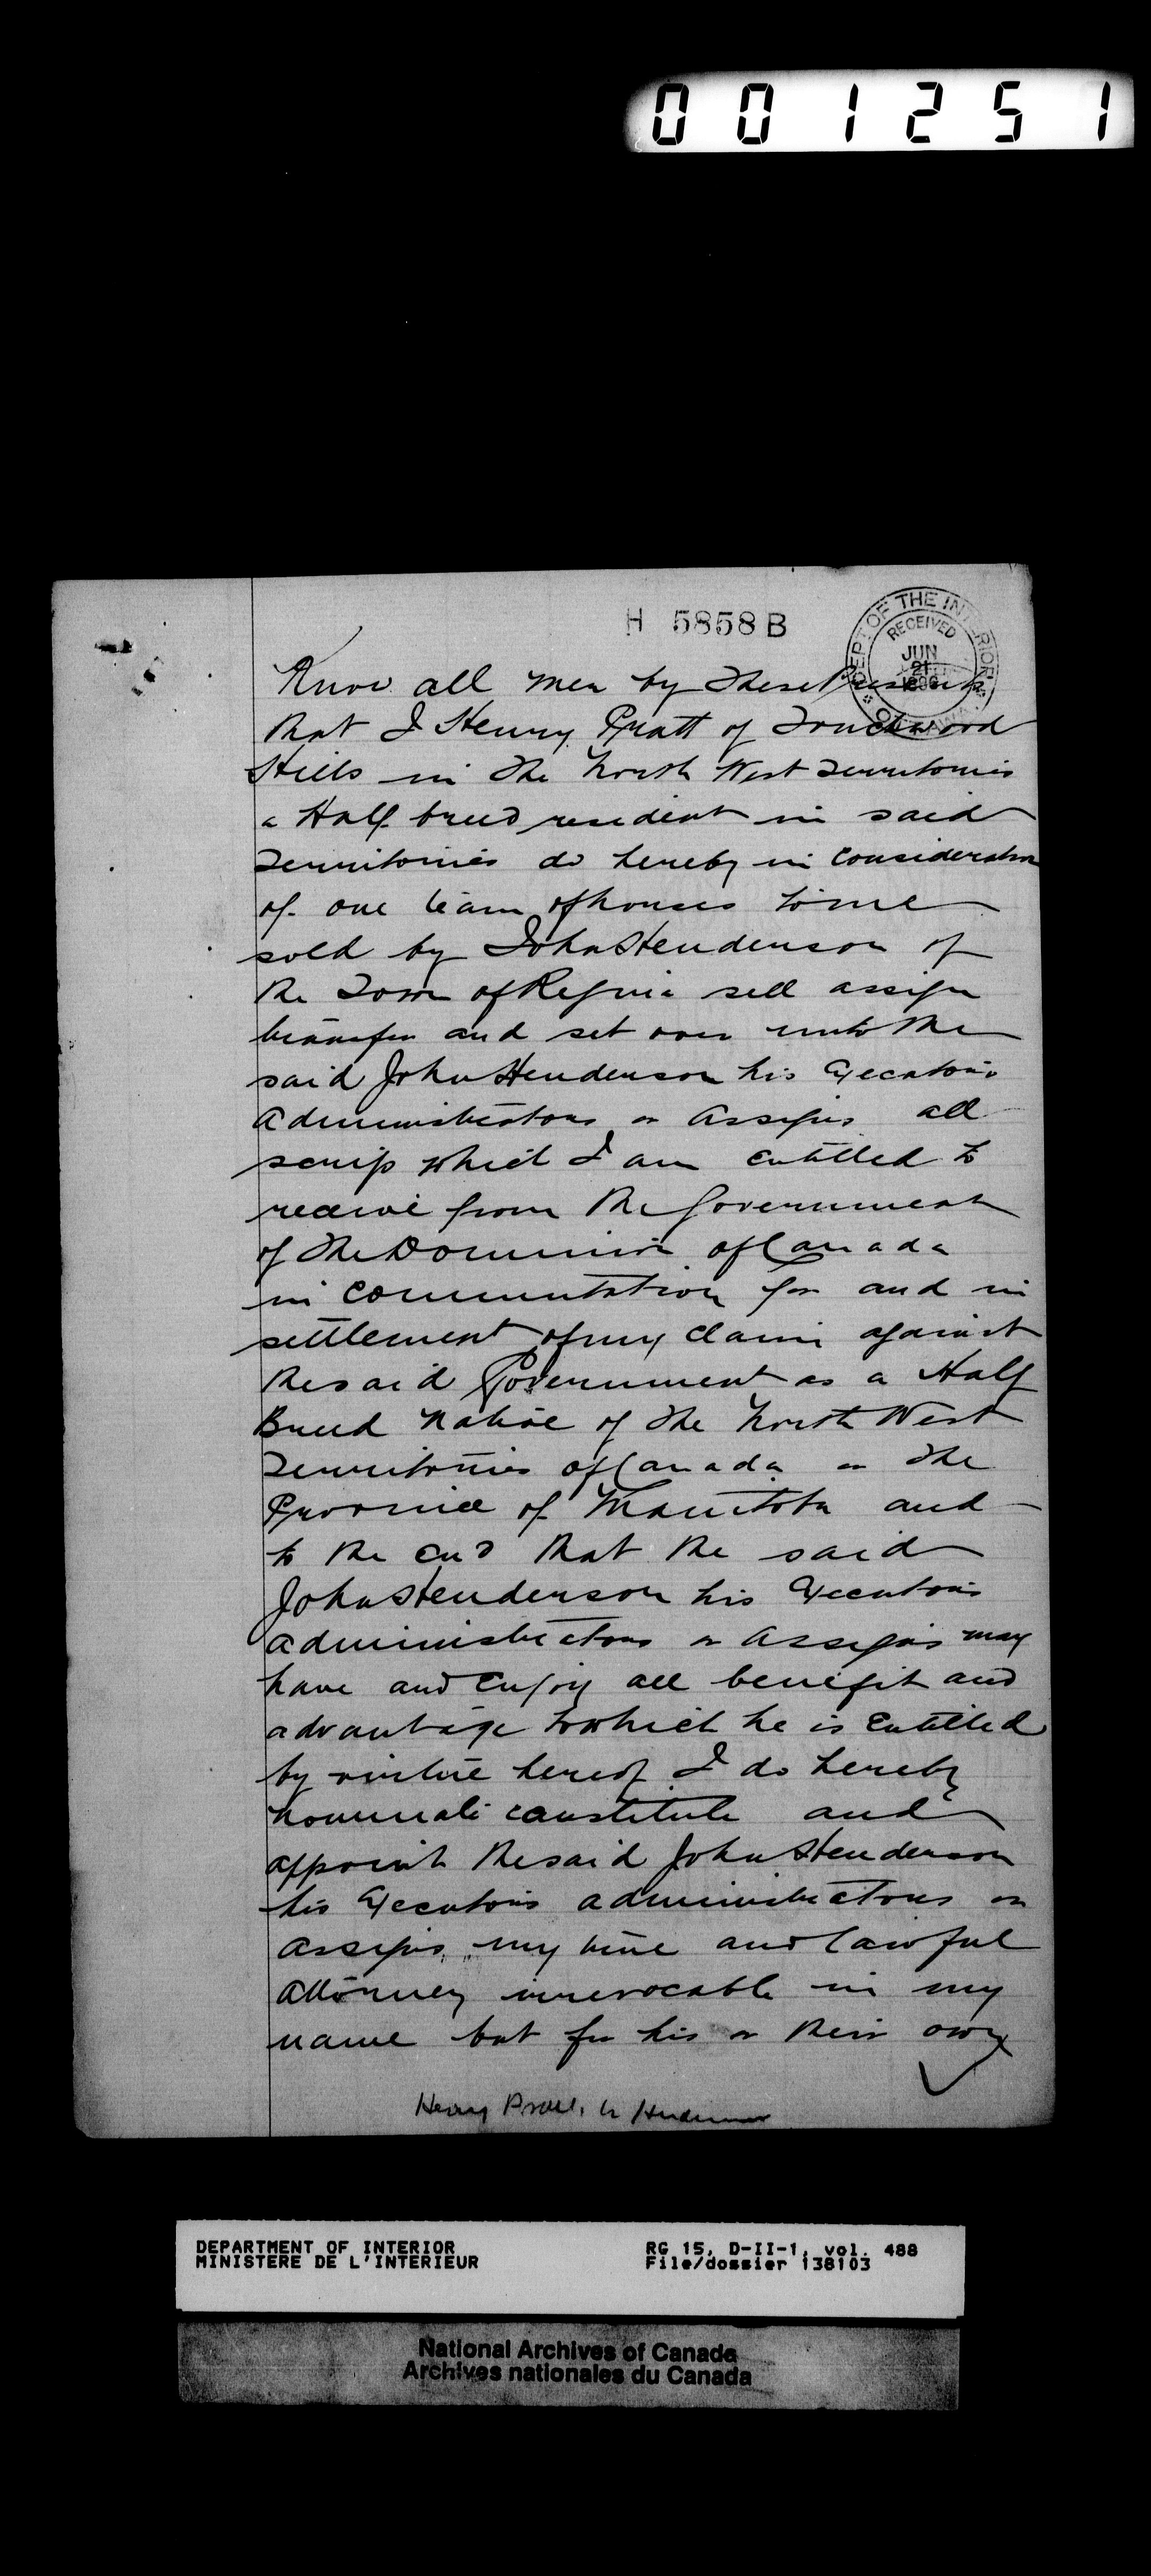 001251
H 5858 B
DEPT OF THE INTERIOR
RECEIVED
JUN
21
OTTAWA
Know all men by these Presents
that I Henry Pratt of Touchwood
Hills in the North West Territories
a Half breed resident in said
Territories do hereby in consideration
of one team of horses to me
sold by John Henderson of
the Town of Regina sell assign
transfer and set over unto the
said John Henderson his Executors
administrators or assigns all
scrip which I am entitled to
receive from the Government
of the Dominion of Canada
in commutation for and in
settlement of my claim against
the said Government as a Half
Breed native of the North West
Territories of Canada or the
Province of Manitoba and
to the end that the said
John Henderson his Executors
administrators or assigns may
have and enjoy all benefit and
advantage to which he is entitled
by virtue hereof I do hereby
nominate constitute and
appoint the said John Henderson
his Executors administrators or
assigns my true and lawful
attorney irrevocable in my
name but for his or their own
Henry Pratt to Henderson
DEPARTMENT OF INTERIOR
MINISTERE DE L'INTERIEUR
RG 15, D-II-1, vol. 488
File/dossier 138103
National Archives of Canada
Archives nationales du Canada